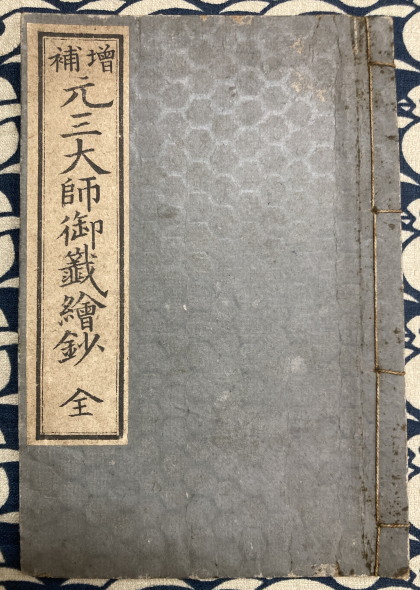 增補
元三大師御籤繪鈔 全